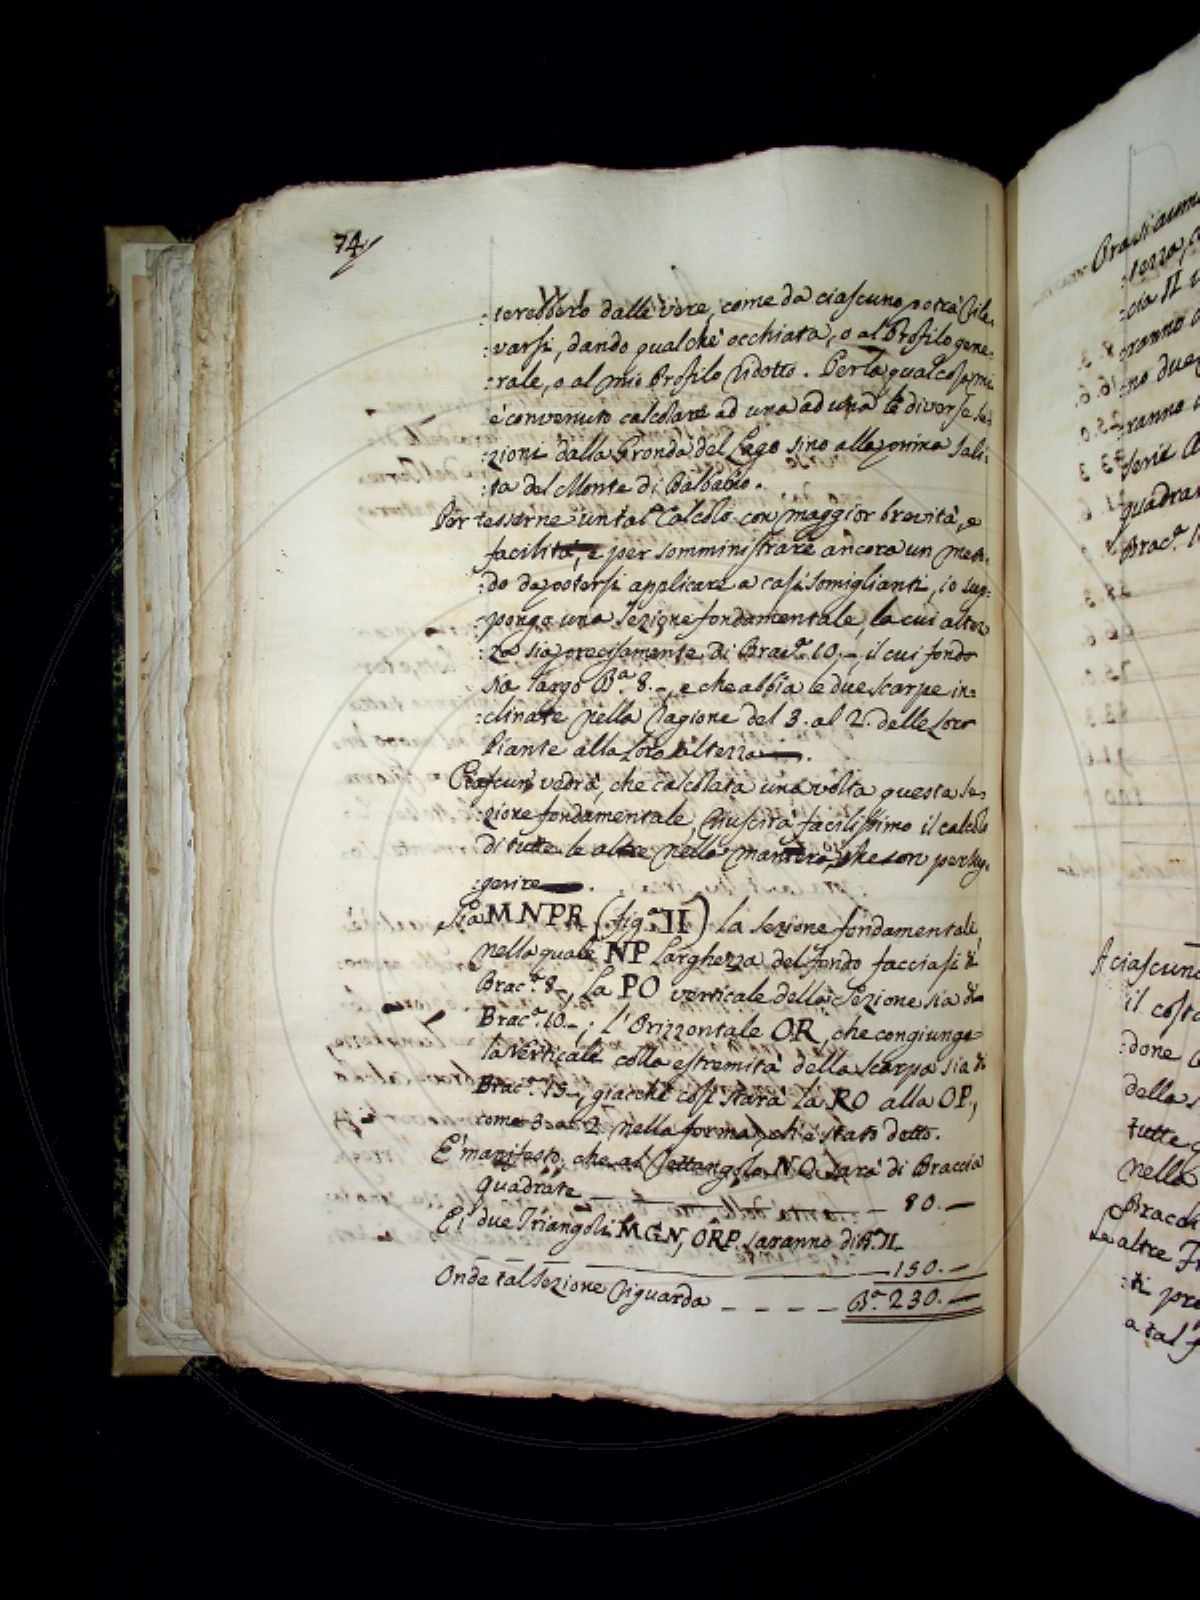 74
:terebbero dalle vere, come da ciascuno potrà rile-
:varsi, dando qualche occhiata, o al Profilo gene-
:rale, o al mio Profilo ridotto. Per la qual cosa mi
è convenuto calcolare ad una ad una le diverse se-
:zioni dalla Gronda del Lago sino alla prima sali-
:ta del Monte di Balbabio.
Per tesserne un tal Calcolo con maggior brevità, e
facilità, e per somministrare ancora un meto-
:do da potersi applicare a casi somiglianti, io sup-
:pongo una sezione fondamentale, la cui altez-
:za sia precisamente di Brac.a 10.-, il cui fondo
sia largo B.a 8.-, e che abbia le due scarpe in-
:clinate nella ragione del 3. al 2. delle loro
Piante alla loro altezza.
Ciascun vedrà, che calcolata una volta questa se-
:zione fondamentale, riuscirà facilissimo il calcolo
di tutte le altre nella maniera, che son per sug-
:gerire.
Sia MNPR (fig.a II) la sezione fondamentale
nella quale NP larghezza del fondo facciasi di
Brac.a 8-, La PO verticale della sezione sia di
Brac.a 10.-; l'Orizzontale OR, che congiunge
la verticale colla estremità della scarpa sia di
Brac.a 15-, giacchè così starà la RO alla OP,
come 3. a 2. nella forma, ch'è stato detto.
E' manifesto, che al rettangolo NO sarà di Braccia
quadrate - - - 80.-
Ei due Triangoli MGN, ORP saranno di B.a II.
- 150.-
Onde tal sezione riguarda - - - - B.a 230.-
A ciascuno
il costo
:done
della s
tutte
nella
Bracci
La altre
:ti pro
a tal f